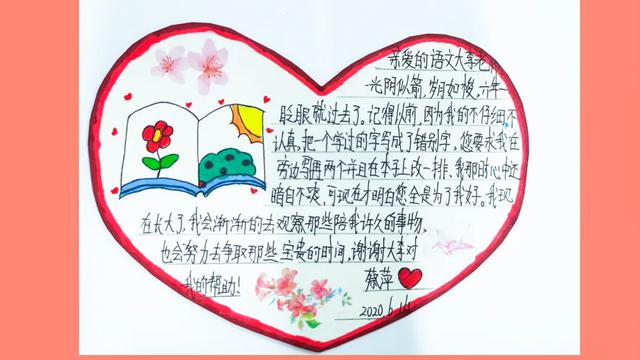 亲爱的语文大李老师
光阴似箭，岁月如梭，六年
眨眼就过去了。记得以前，因为我的不仔细不
认真，把一个学过的字写成了错别字。您要求我在
旁边写两个并且在本子上改一排。我那时心中还
暗自不爽，可现在才明白您全是为了我好。我现
在长大了，我会渐渐的去观察那些陪我许久的事物，
也会努力去争取那些宝贵的时间，谢谢大李对
我的帮助！
萍
2020 6